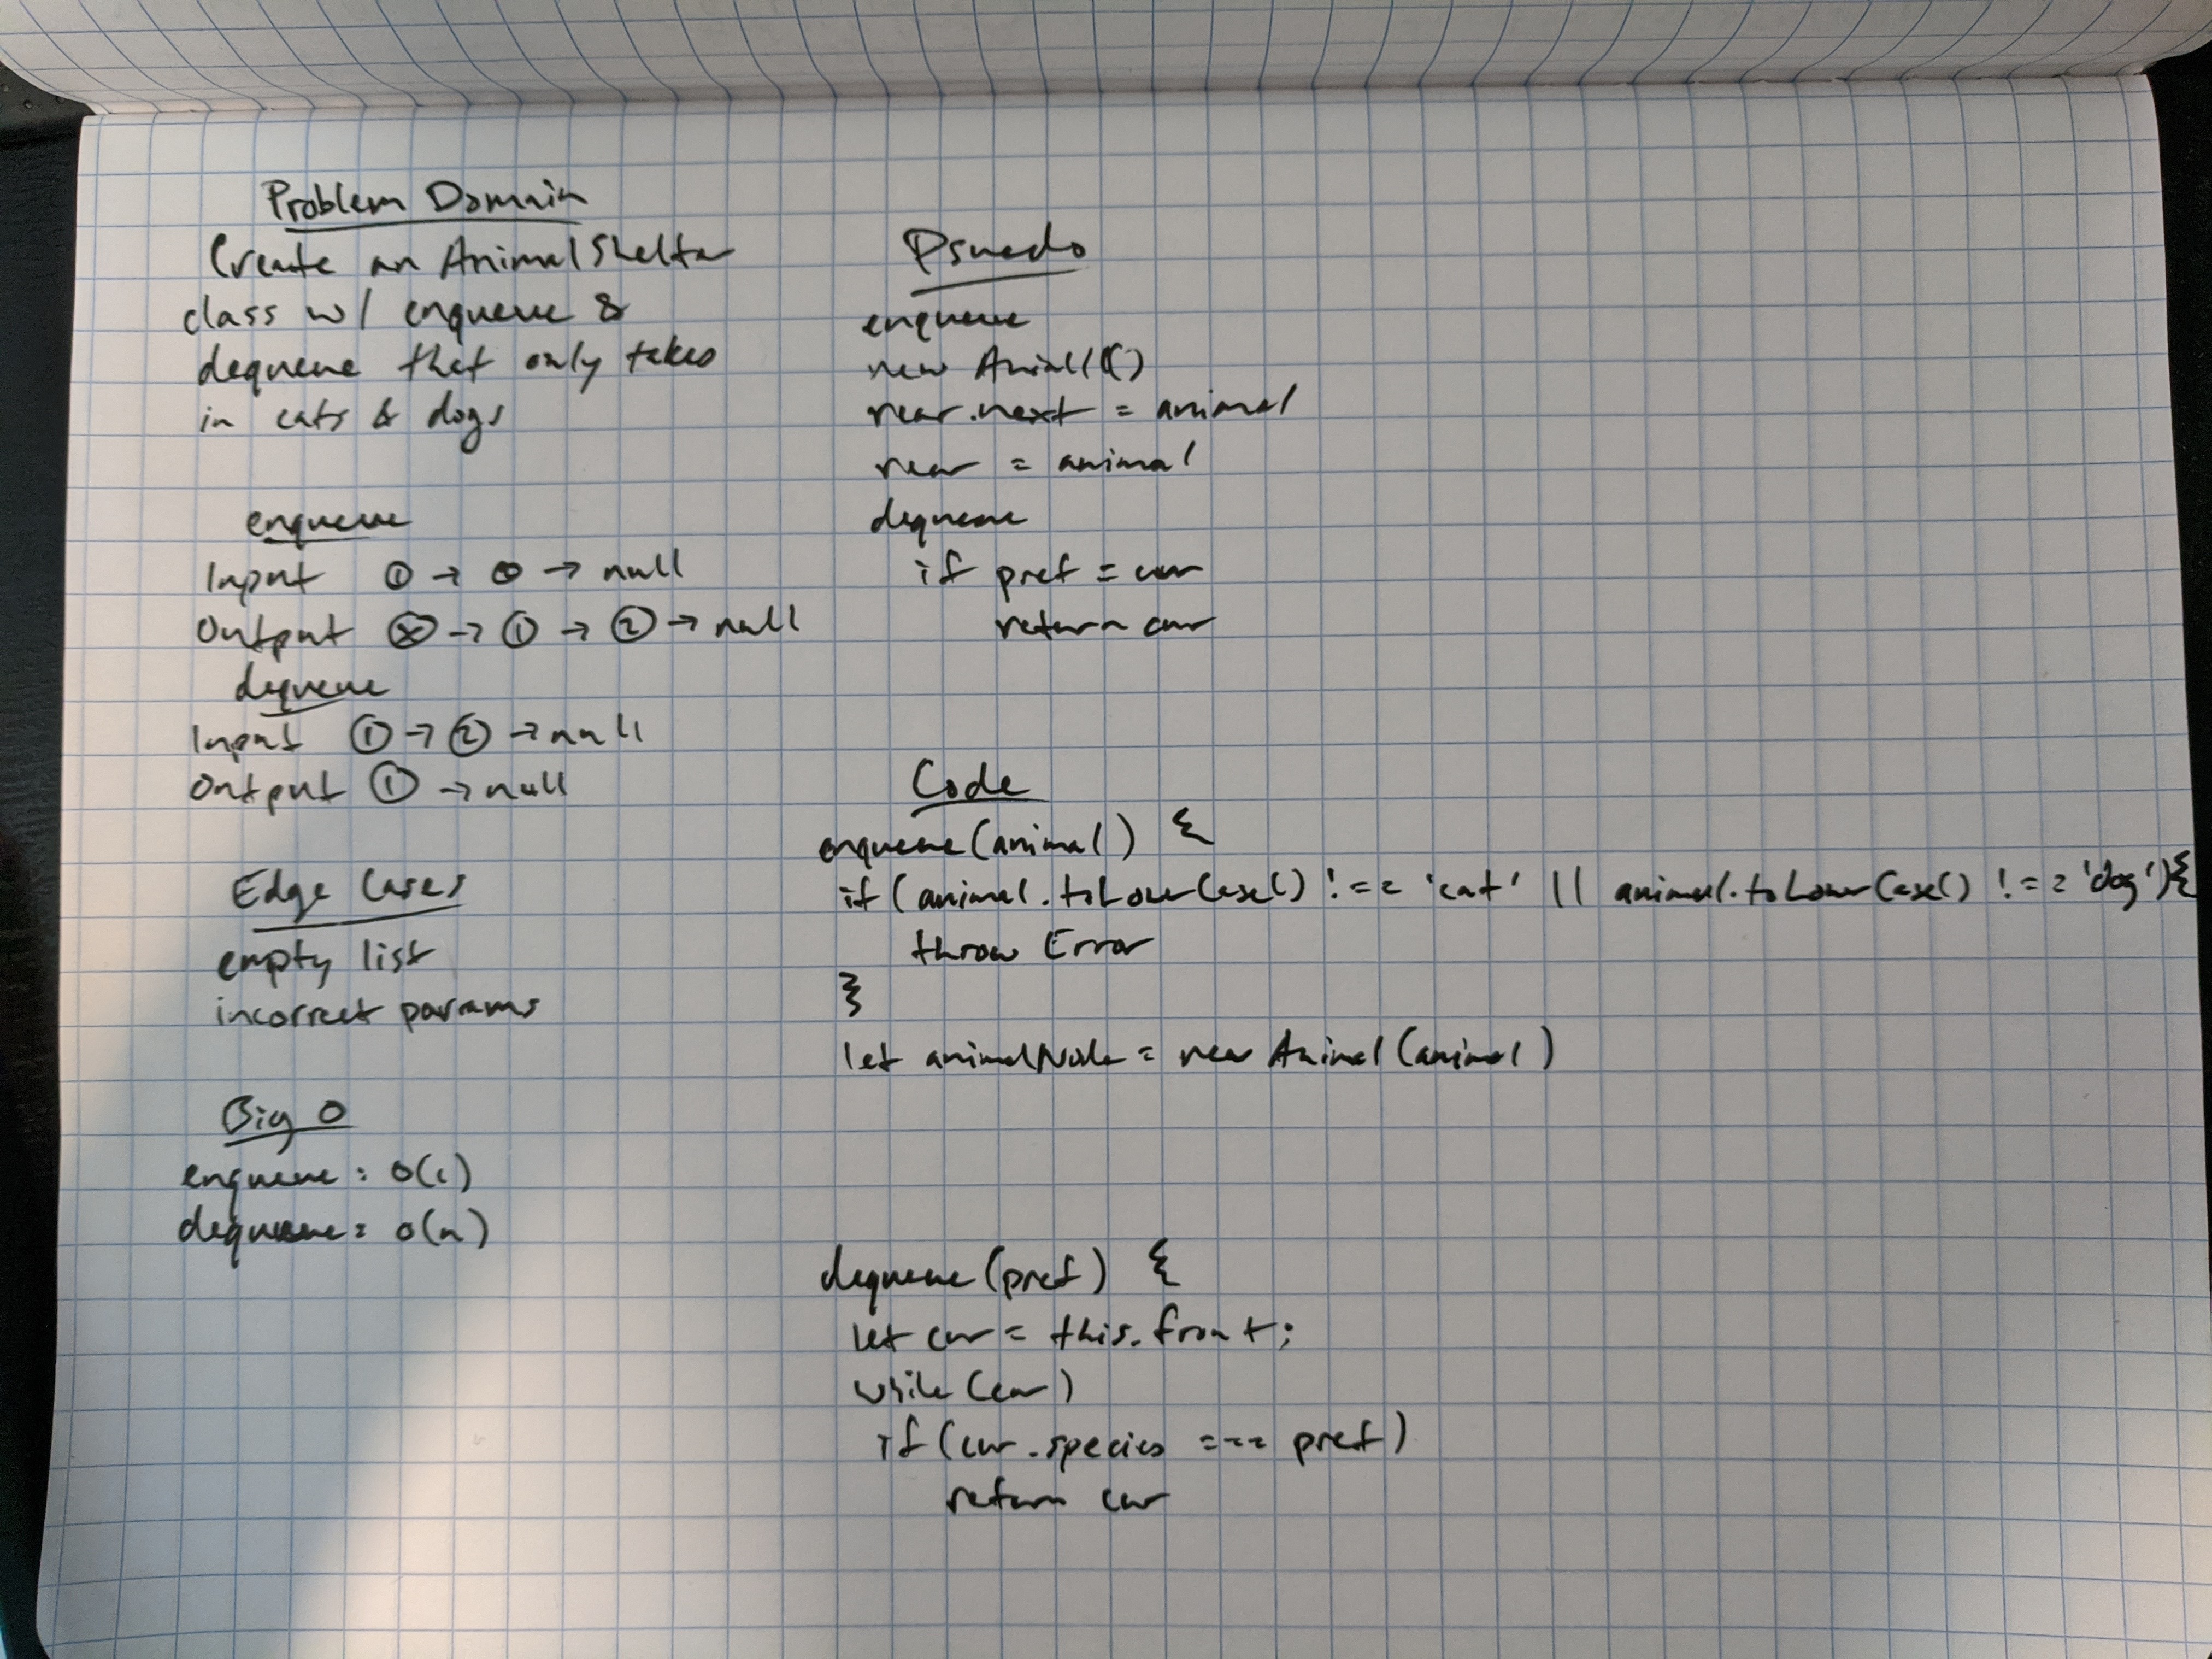 Problem Domain
Create an AnimalShelter
class w/ enqueue &
dequeue that only takes
in cats & dogs
enqueue
Input ① → → null
Output ⓧ → ① → ② → null
dequeue
Input ① → ② → null
Output ① → null
Edge Cases
empty list
incorrect params
Big O
enqueue: O(1)
dequeue: O(n)
Psuedo
enqueue
new ()
rear.next = animal
rear = animal
dequeue
if pref = cur
return cur
Code
enqueue(animal) {
if(animal.toLowerCase() !== 'cat' || animal.toLowerCase() !== 'dog'){
throw Error
}
let animalNode = new Animal(animal)
dequeue(pref) {
let cur = this.front;
while(cur)
if(cur.species === pref)
return cur